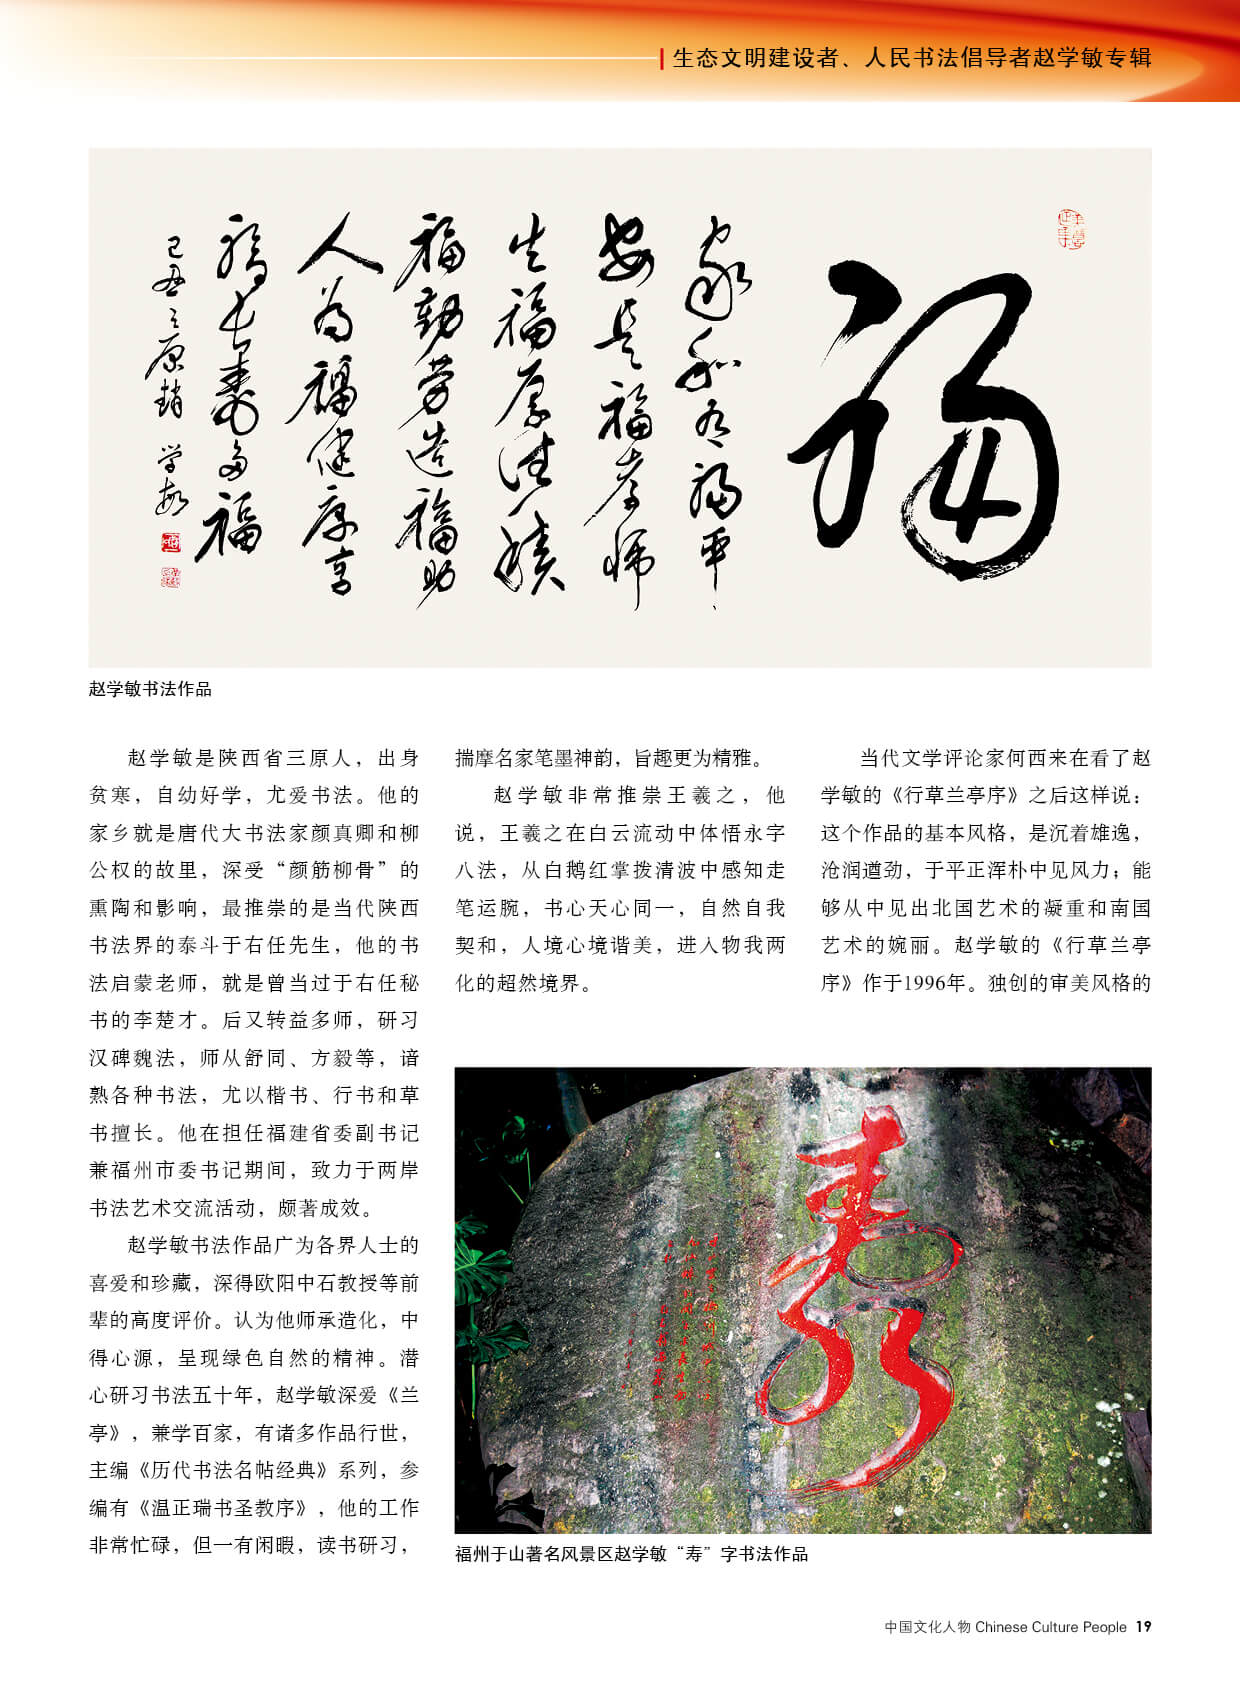 生态文明建设者、人民书法倡导者赵学敏专辑
福
家和为福平
安是福孝师
生福厚德积
福勤劳造福助
人为福健康享
福长寿多福
己丑之原韬 学敏
赵学敏书法作品
赵学敏是陕西省三原人，出身
贫寒，自幼好学，尤爱书法。他的
家乡就是唐代大书法家颜真卿和柳
公权的故里，深受“颜筋柳骨”的
熏陶和影响，最推崇的是当代陕西
书法界的泰斗于右任先生，他的书
法启蒙老师，就是曾当过于右任秘
书的李楚才。后又转益多师，研习
汉碑魏法，师从舒同、方毅等，谙
熟各种书法，尤以楷书、行书和草
书擅长。他在担任福建省委副书记
兼福州市委书记期间，致力于两岸
书法艺术交流活动，颇著成效。
赵学敏书法作品广为各界人士的
喜爱和珍藏，深得欧阳中石教授等前
辈的高度评价。认为他师承造化，中
得心源，呈现绿色自然的精神。潜
心研习书法五十年，赵学敏深爱《兰
亭》，兼学百家，有诸多作品行世，
主编《历代书法名帖经典》系列，参
编有《温正瑞书圣教序》，他的工作
非常忙碌，但一有闲暇，读书研习，
揣摩名家笔墨神韵，旨趣更为精雅。
赵学敏非常推崇王羲之，他
说，王羲之在白云流动中体悟永字
八法，从白鹅红掌拨清波中感知走
笔运腕，书心天心同一，自然自我
契和，人境心境谐美，进入物我两
化的超然境界。
当代文学评论家何西来在看了赵
学敏的《行草兰亭序》之后这样说：
这个作品的基本风格，是沉着雄逸，
沧润遒劲，于平正浑朴中见风力；能
够从中见出北国艺术的凝重和南国
艺术的婉丽。赵学敏的《行草兰亭
序》作于1996年。独创的审美风格的
寿
福州于山著名风景区赵学敏“寿”字书法作品
中国文化人物 Chinese Culture People 19